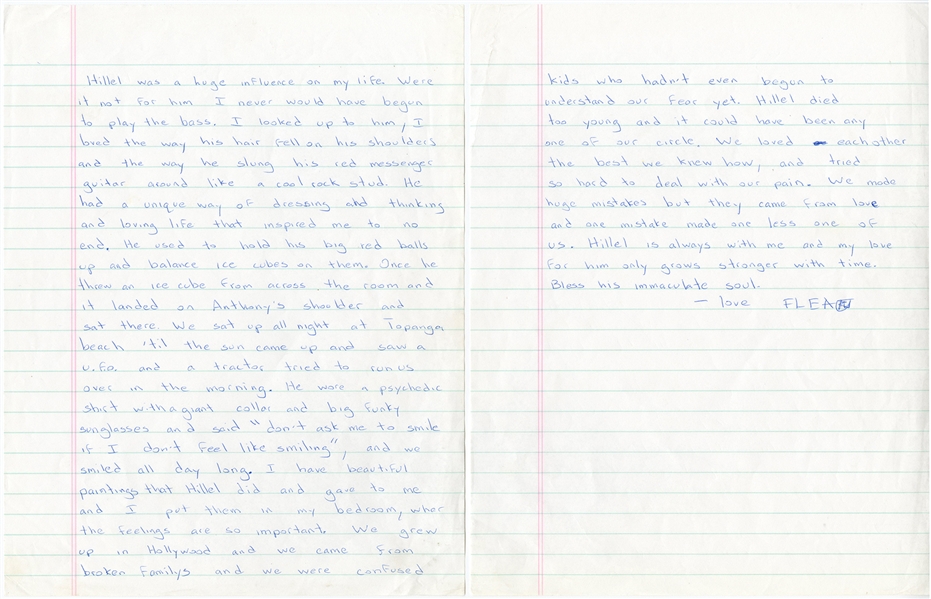 Hillel was a huge influence on my life. Were
it not for him I never would have begun
to play the bass. I looked up to him, I
loved the way his hair fell on his shoulders
and the way he slung his red messenger
guitar around like a cool rock stud. He
had a unique way of dressing and thinking
and loving life that inspired me to no
end. He used to hold his big red balls
up and balance ice cubes on them. Once he
threw an ice cube from across the room and
it landed on Anthony's shoulder and
sat there. We sat up all night at Topanga
beach 'til the sun came up and saw a
U.F.O. and a tractor tried to run us
over in the morning. He wore a psychedic
shirt with a giant collar and big funky
sunglasses and said "don't ask me to smile
if I don't feel like smiling", and we
smiled all day long. I have beautiful
paintings that Hillel did and gave to me
and I put them in my bedroom, wher
the feelings are so important. We grew
up in Hollywood and we came from
broken familys and we were confused
kids who hadn't even begun to
understand our fear yet. Hillel died
too young and it could have been any
one of our circle. We loved eachother
the best we knew how, and tried
so hard to deal with our pain. We made
huge mistakes but they came from love
and one mistake made one less one of
us. Hillel is always with me and my love
for him only grows stronger with time.
Bless his immaculate soul.
— love FLEA